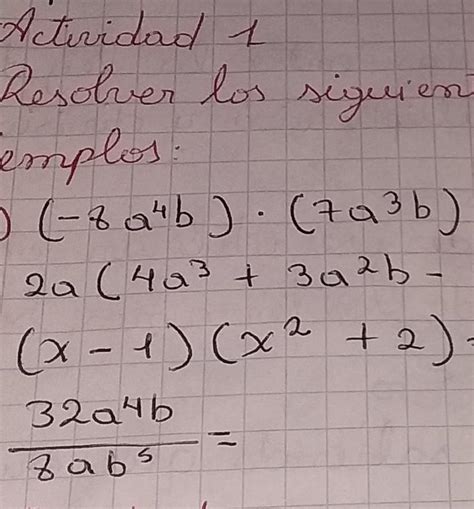 Actividad 1
Resolver los siguien
emplos:
) (-8a⁴b) · (7a³b)
2a (4a³ + 3a²b -
(x - 1) (x² + 2)
32a⁴b
8ab⁵ =